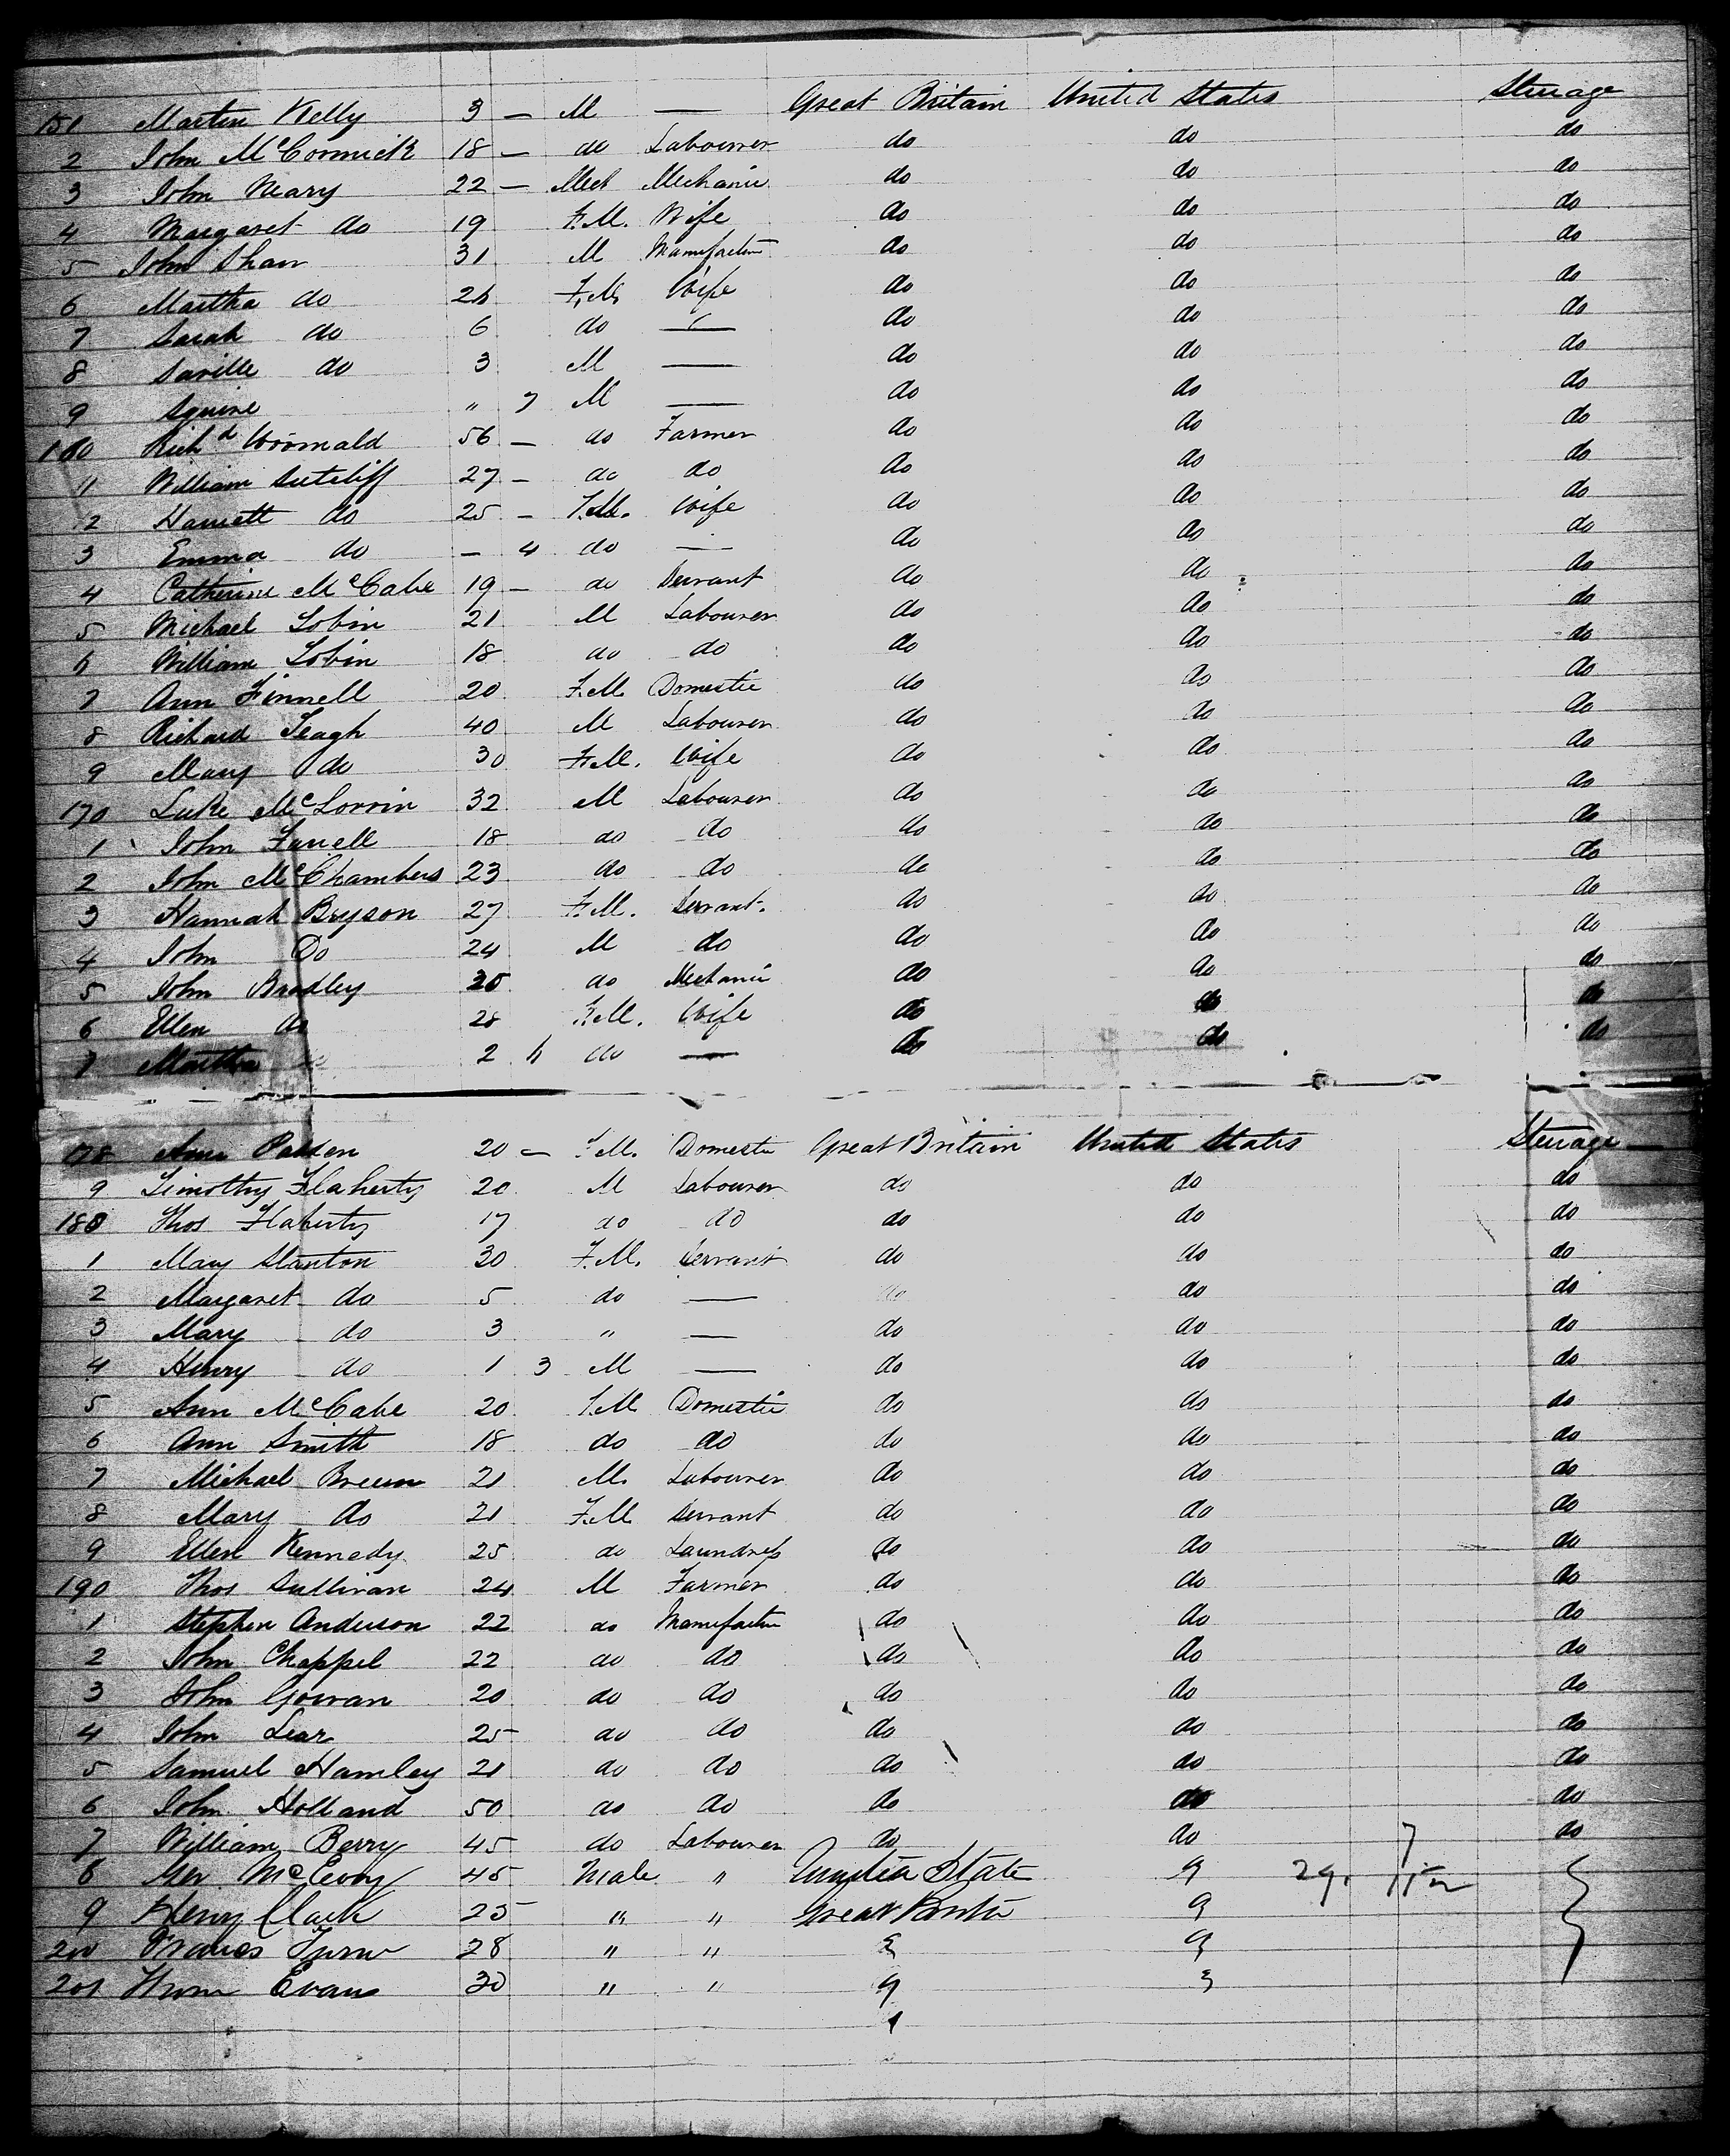 151 Martin Kelly 3 — M — Great Britain United States Sterage
2 John McCormick 18 — do Labourer do do do
3 John Neary 22 — Mech Mechanic do do do
4 Margaret do 19 F.M. Wife do do do
5 John Shaw 31 M Manufactur do do do
6 Martha do 26 F.M. Wife do do do
7 Sarah do 6 do — do do do
8 Saville do 3 M — do do do
9 Squire " 7 M — do do do
160 Richd Wormald 56 — do Farmer do do do
11 William Sutcliff 27 — do do do do do
2 Harriett do 25 — F.M. Wife do do do
3 Emma do — 4 do — do do do
4 Catherine McCabe 19 — do Servant do do do
5 Michael Tobin 21 M Labourer do do do
6 William Tobin 18 do do do do do
7 Ann Finnell 20 F.M. Domestic do do do
8 Richard Teagh 40 M Labourer do do do
9 Mary do 30 F.M. Wife do do do
170 Luke 32 M Labourer do do do
1 John Farrell 18 do do do do do
2 John McChambers 23 do do do do do
3 Hannah Bryson 27 F.M. Servant. do do do
4 John Do 24 M do do do do
5 John Bradley do Mechanic do do do
6 Ellen do 28 F.M. Wife do do do
7 Martha 2 6 do — do do do
178 Ann Patten 20 — F.M. Domestic Great Britain United States Sterage
9 Timothy Flaherty 20 M Labourer do do do
180 Thos Flaherty 17 do do do do do
1 Mary Stanton 30 F.M. Servant do do do
2 Margaret do 5 do — do do do
3 Mary do 3 " — do do do
4 Henry do 1 3 M — do do do
5 Ann McCabe 20 F.M. Domestic do do do
6 Ann Smith 18 do do do do do
7 Michael Breen 21 M. Labourer do do do
8 Mary do 21 F.M. Servant do do do
9 Ellen Kennedy 25 do Laundress do do do
190 Thos Sullivan 24 M Farmer do do do
1 Stephen Anderson 22 do Manufactur do do do
2 John Chappel 22 do do do do do
3 John Gowan 20 do do do do do
4 John Lear 25 do do do do do
5 Samuel Hamley 21 do do do do do
6 John Holland 50 do do do do do
7 William Berry 45 do Labourer do do do
8 McEvoy 45 Male " State
9 Henry Clark 25 " " Great
200 Frances 28 " "
201 Evans 30 " "